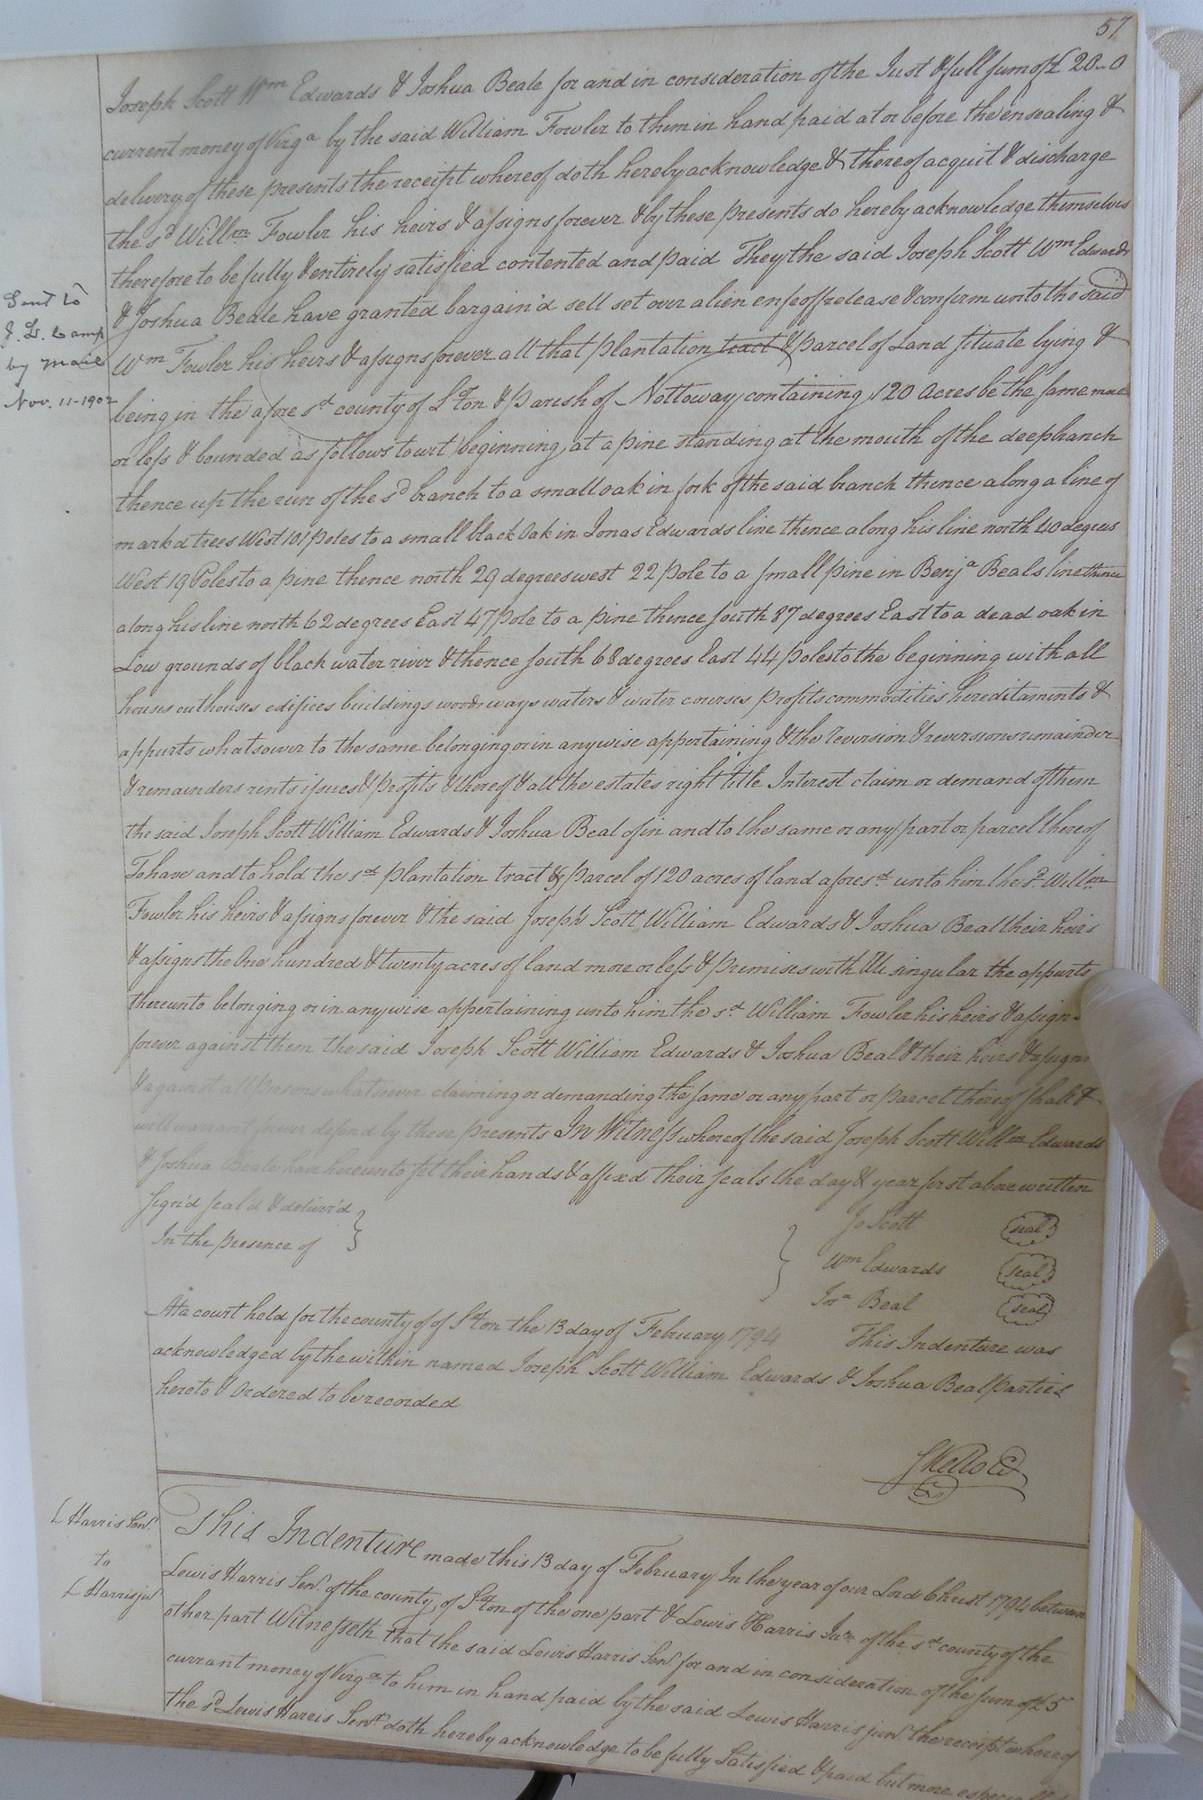 57
Joseph Scott Wm Edwards & Joshua Beale for and in consideration of the Just & full sum of £ 20-0
current money of Virga by the said William Fowler to them in hand paid at or before the ensealing &
delivery of these presents the receipt whereof doth hereby acknowledge & thereof acquit & discharge
the sd Willm Fowler his heirs & assigns forever & by these presents do hereby acknowledge themselves
therefore to be fully & entirely satisfied contented and paid They the said Joseph Scott Wm Edwards
& Joshua Beale have granted bargain'd sell set over alien enfeoff release & confirm unto the said
Wm Fowler his heirs & assigns forever all that plantation tract & parcel of Land situate lying &
being in the afore sd county of Sºton & Parish of Nottoway containing 120 acres be the same more
or less & bounded as follows towit beginning at a pine standing at the mouth of the deep branch
thence up the run of the sd branch to a small oak in fork of the said branch thence along a line of
markd trees West 101 poles to a small black Oak in Jonas Edwards line thence along his line north 40 degrees
West 19 Poles to a pine thence north 29 degrees west 22 pole to a small pine in Benja Beals line thence
along his line north 62 degrees East 47 pole to a pine thence south 87 degrees East to a dead oak in
Low grounds of black water river & thence south 68 degrees East 44 poles to the beginning with all
houses outhouses edifices buildings woods ways waters & water courses profits commodities hereditaments &
appurts whatsoever to the same belonging or in any wise appertaining & the Reversion & reversions remainder
& remainders rents issues & profits & thereof & all the estates right title Interest claim or demand of them
the said Joseph Scott William Edwards & Joshua Beal of in and to the same or any part or parcel thereof
To have and to hold the sd plantation tract & parcel of 120 acres of land aforesd unto him the sd Willm
Fowler his heirs & assigns forever & the said Joseph Scott William Edwards & Joshua Beal their heirs
& assigns the One hundred & twenty acres of land more or less & premises with All singular the appurts
thereunto belonging or in anywise appertaining unto him the sd William Fowler his heirs & assigns
forever against them the said Joseph Scott William Edwards & Joshua Beal & their heirs & assigns
& against all Persons whatsoever claiming or demanding the same or any part or parcel thereof shall &
will warrant forever defend by these presents In Witness whereof the said Joseph Scott Willm Edwards
& Joshua Beale have hereunto set their hands & affixd their seals the day & year first above written
Sign'd seal'd & deliver'd
In the presence of
Jo Scott seal
Wm Edwards seal
Josa Beal seal
At a court held for the county of of Sºton the 13 day of February 1794 This Indenture was
acknowledged by the within named Joseph Scott William Edwards & Joshua Beal parties
hereto & Ordered to be recorded
Sent to
by mail
Nov. 11-1902
L Harris Senr
to
L Harris junr
This Indenture made this 13 day of February In the year of our Lord Christ 1794 between
Lewis Harris Senr of the county of Sºton of the one part & Lewis Harris Junr of the sd county of the
other part Witnesseth that the said Lewis Harris Senr for and in consideration of the sum of £5
currant money of Virga to him in hand paid by the said Lewis Harris junr the receipt whereof
the sd Lewis Harris Senr doth hereby acknowledge to be fully Satisfied & paid but more